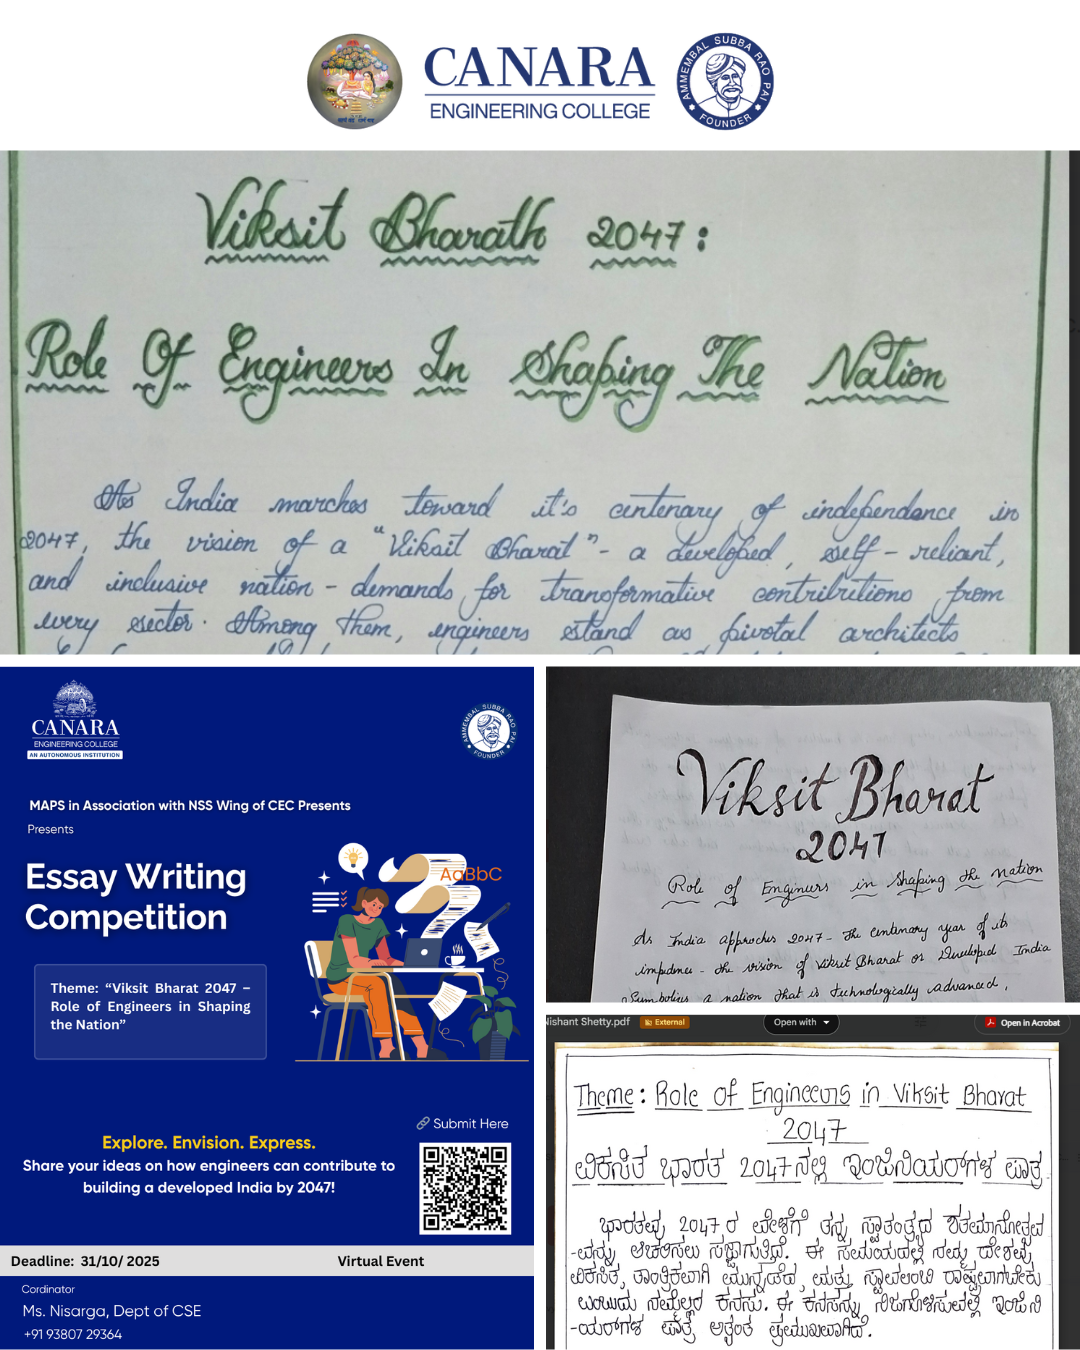 CANARA
ENGINEERING COLLEGE
AMMEMBAL SUBBA RAO PAI
FOUNDER
Viksit Bharath 2047:
Role Of Engineers In Shaping The Nation
As India marches toward it's centenary of independance in
2047, the vision of a "Viksit Bharat" - a developed, self-reliant,
and inclusive nation - demands for transformative contributions from
every sector. Among them, engineers stand as pivotal architects
CANARA
ENGINEERING COLLEGE
AN AUTONOMOUS INSTITUTION
AMMEMBAL SUBBA RAO PAI
FOUNDER
MAPS in Association with NSS Wing of CEC Presents
Presents
Essay Writing
Competition
AaBbC
Theme: “Viksit Bharat 2047 –
Role of Engineers in Shaping
the Nation”
Submit Here
Explore. Envision. Express.
Share your ideas on how engineers can contribute to
building a developed India by 2047!
Deadline: 31/10/ 2025
Virtual Event
Cordinator
Ms. Nisarga, Dept of CSE
+91 93807 29364
Viksit Bharat
2047
Role of Engineers in Shaping the Nation
As India approches 2047 - the centenary year of its
- the vision of Viksit Bharat or Developed India
Symbolizes a nation that is technologically advanced,
Nishant Shetty.pdf
External
Open with
Open in Acrobat
Theme: Role of Engineers in Viksit Bharat
2047
ವಿಕಸಿತ ಭಾರತ 2047ನಲ್ಲಿ ಇಂಜಿನಿಯರ್‌ಗಳ ಪಾತ್ರ
ಭಾರತವು 2047 ರ ವೇಳೆಗೆ ತನ್ನ ಸ್ವಾತಂತ್ರ್ಯದ ಶತಮಾನೋತ್ಸವ
-ವನ್ನು ಆಚರಿಸಲು ಸಜ್ಜಾಗುತ್ತಿದೆ. ಈ ಸಮಯದಲ್ಲಿ ನಮ್ಮ ದೇಶವು
ವಿಕಸಿತ, ತಾಂತ್ರಿಕವಾಗಿ ಮುನ್ನಡೆದ, ಮತ್ತು ಸ್ವಾವಲಂಬಿ ರಾಷ್ಟ್ರವಾಗಬೇಕು
ಎಂಬುದು ನಮ್ಮೆಲ್ಲರ ಕನಸು. ಈ ಕನಸನ್ನು ನಿಜಗೊಳಿಸುವಲ್ಲಿ ಇಂಜಿನಿ
-ಯರ್‌ಗಳ ಪಾತ್ರ ಅತ್ಯಂತ ಪ್ರಮುಖವಾಗಿದೆ.